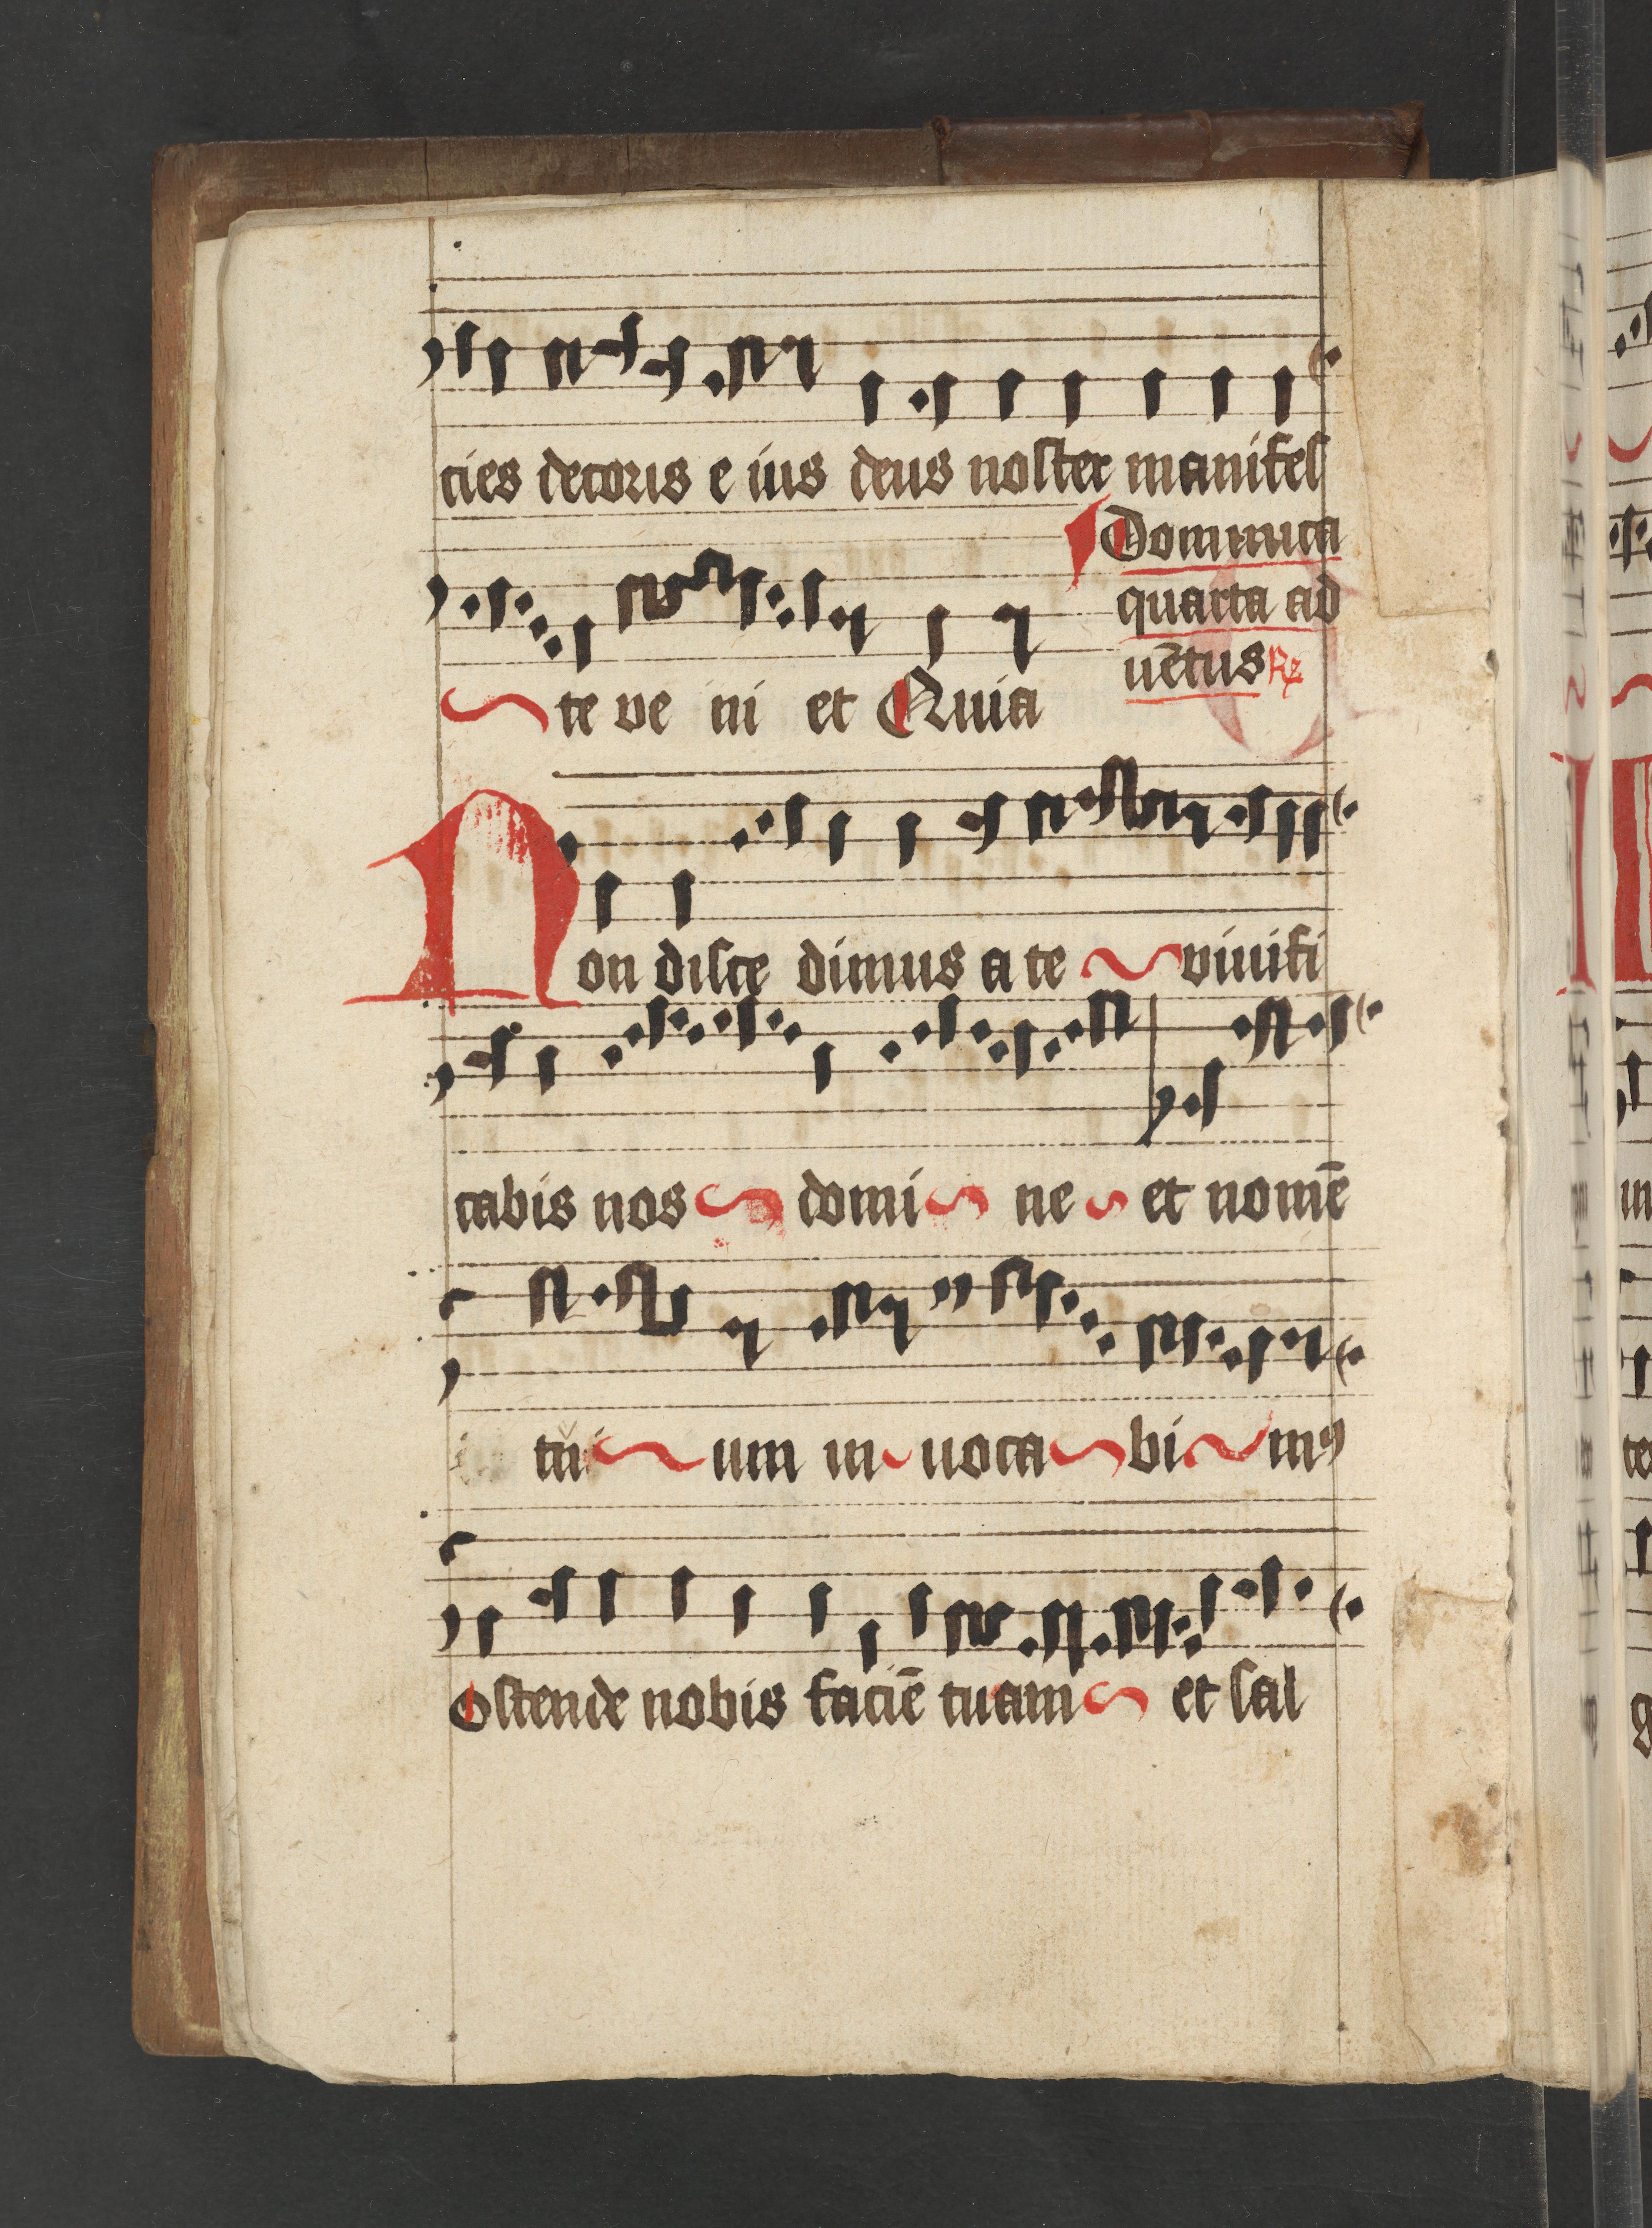 cies decoris e ius deus noster manifes
te ve ni et Quia
Dominica
quarta ad
uētus R
Non disce dimus a te viuifi
cabis nos domi ne et nomē
tu um in uoca bi mꝰ
Ostende nobis faciē tuam et sal